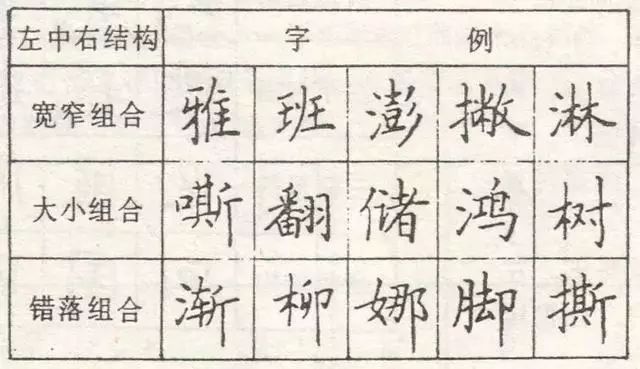 左中右结构 字 例
宽窄组合 雅 班 澎 撇 淋
大小组合 嘶 翻 储 鸿 树
错落组合 渐 柳 娜 脚 撕